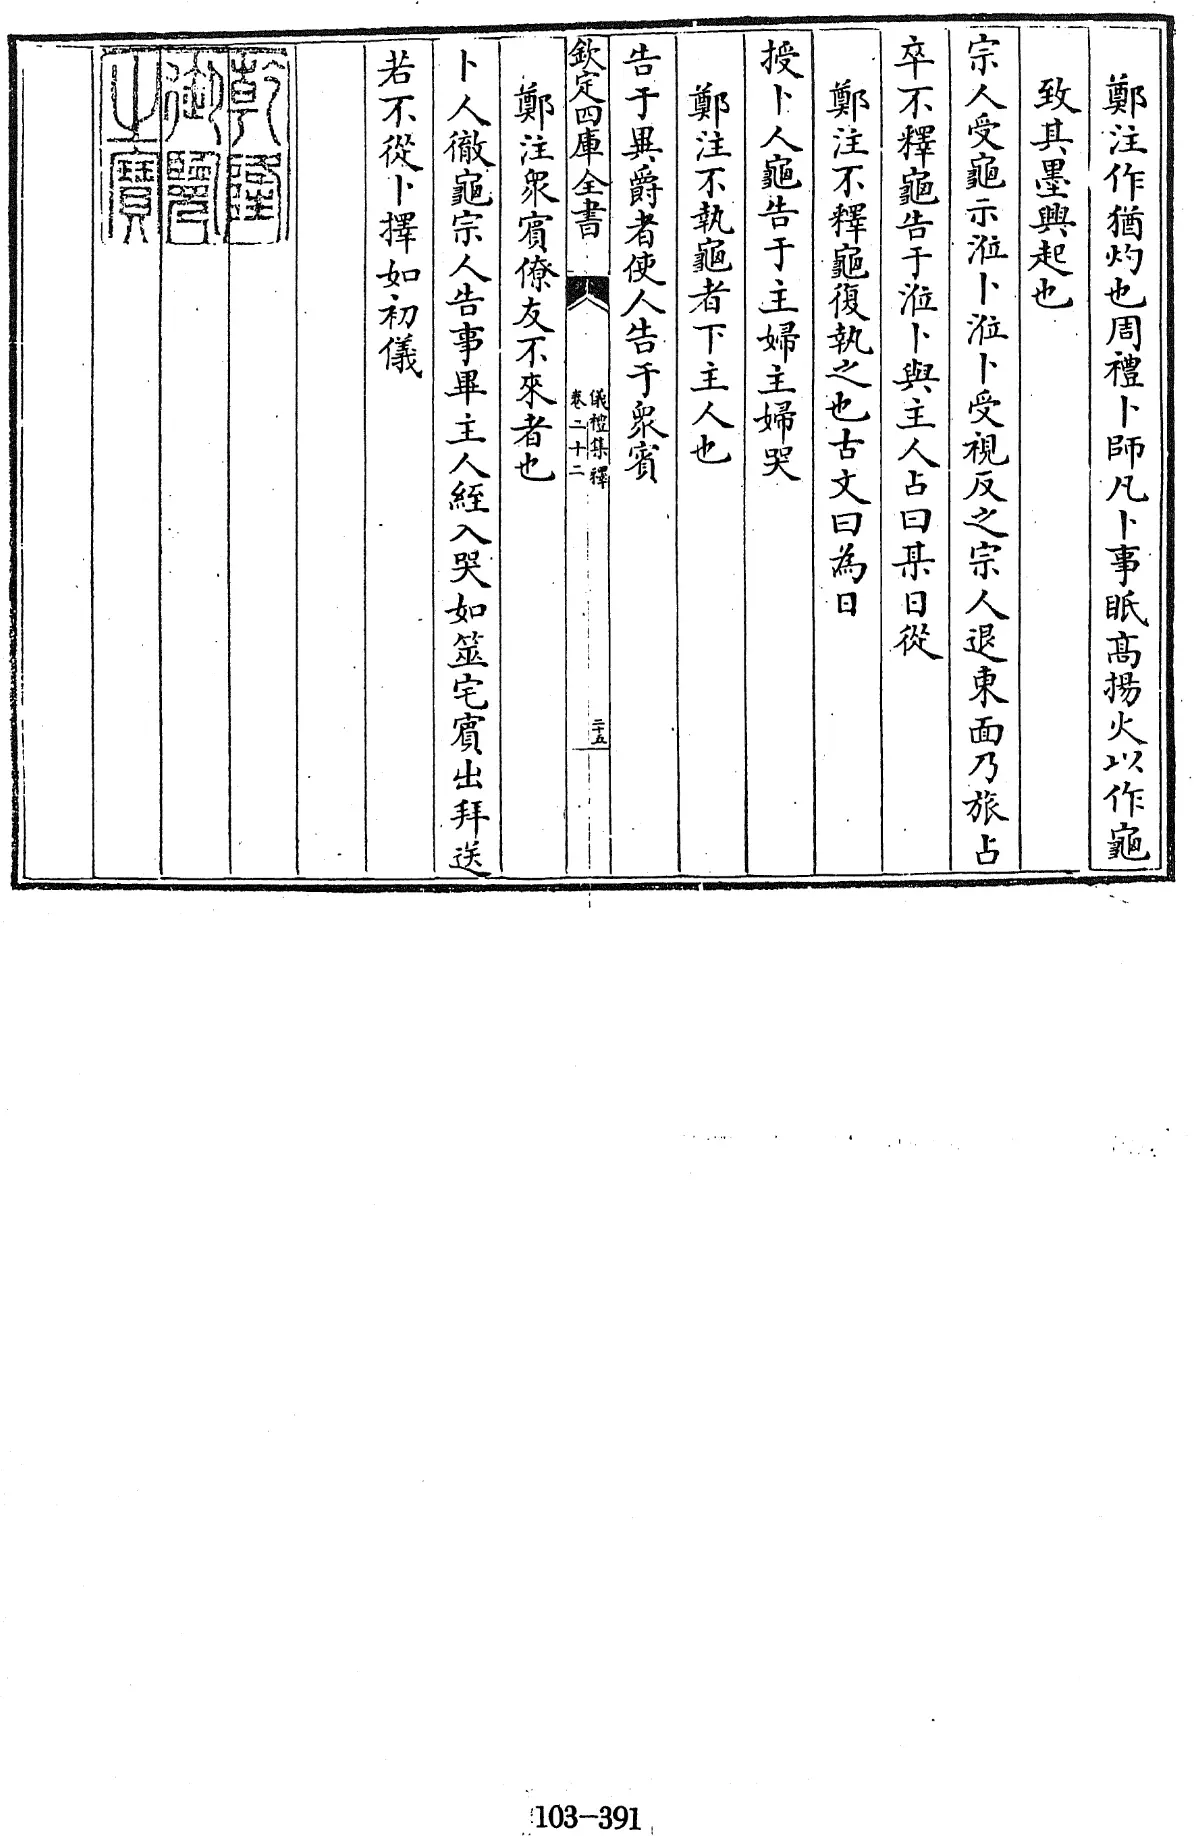 鄭注作猶灼也周禮卜師凡卜事眡髙揚火以作龜
致其墨興起也
宗人受龜示涖卜涖卜受視反之宗人退東面乃旅占
卒不釋龜告于涖卜與主人占曰某日從
鄭注不釋龜復執之也古文曰為日
授卜人龜告于主婦主婦哭
鄭注不執龜者下主人也
告于異爵者使人告于衆賓
欽定四庫全書
儀禮集釋
卷二十二
二十五
鄭注衆賓僚友不來者也
卜人徹龜宗人告事畢主人絰入哭如筮宅賓出拜送
若不從卜擇如初儀
乾隆
御覽
之寶
103-391